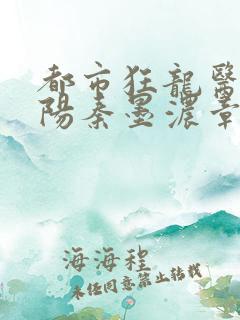 都市狂龍醫
陽秦墨濃章
海海程
未经同意禁止转载